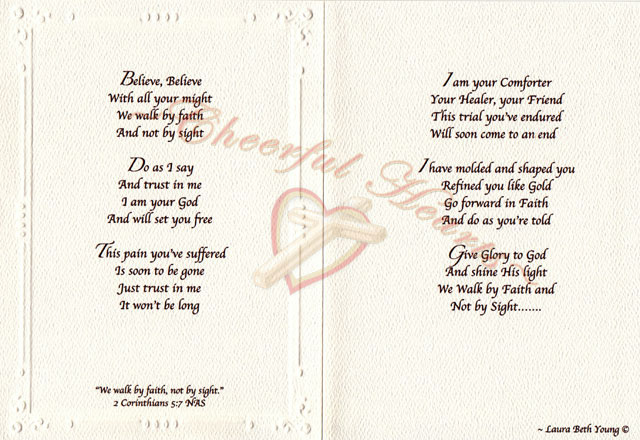 Believe, Believe
With all your might
We walk by faith
And not by sight
Do as I say
And trust in me
I am your God
And will set you free
This pain you've suffered
Is soon to be gone
Just trust in me
It won't be long
"We walk by faith, not by sight."
2 Corinthians 5:7 NAS
I am your Comforter
Your Healer, your Friend
This trial you've endured
Will soon come to an end
I have molded and shaped you
Refined you like Gold
Go forward in Faith
And do as you're told
Give Glory to God
And shine His light
We Walk by Faith and
Not by Sight.......
~ Laura Beth Young ©
~Cheerful Hearts~